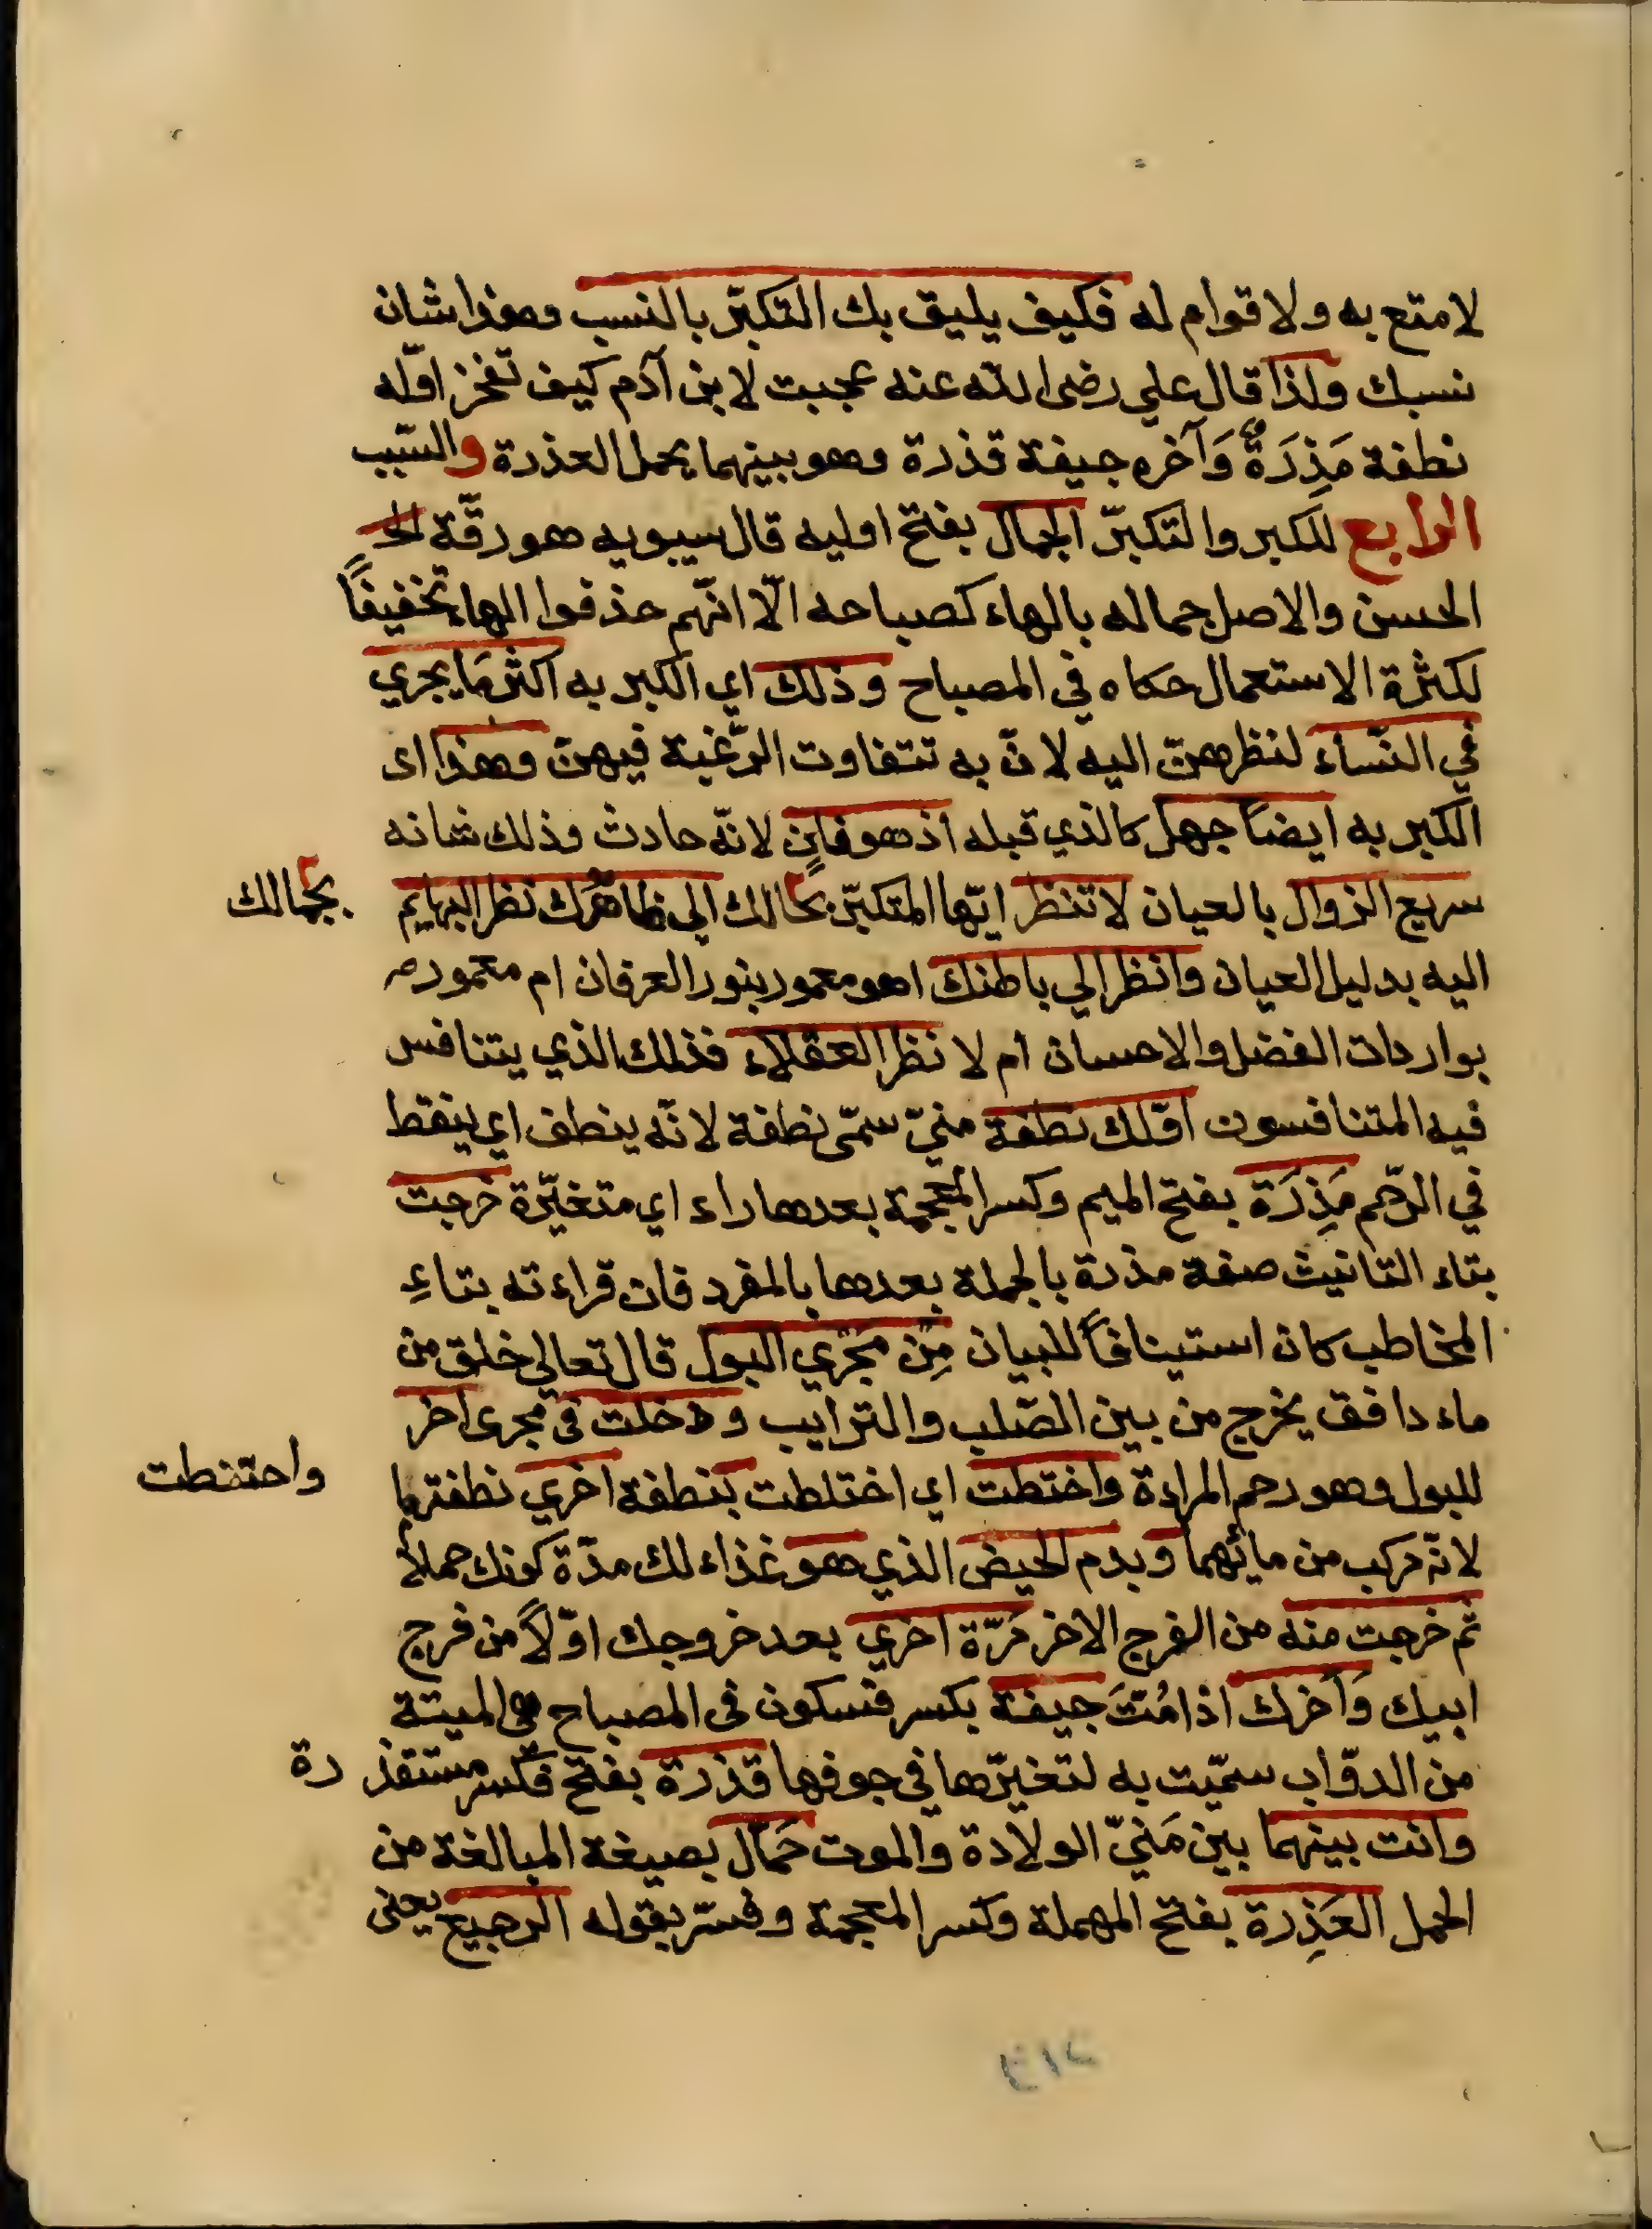 لا متع به ولا قوام له فكيف يليق بك التكبّر بالنسب وهذا شان
نسبك ولذا قال علي رضى الله عنه عجبت لابن آدم كيف تفخر اوّله
نطفة مَذِرَةٌ وَآخره جيفة قذرة وهو بينهما يحمل العذرة والسّبب
الرابع للكبر والتكبرّ الجمال بفتح اوليه قال سيبويه هو رقّة الحـ
الحسن والاصل جماله بالهاء كصباحه الّا انّهم حذفوا الهاء تخفيفاً
لكثرة الاستعمال حكاه في المصباح وذلك اي الكبر به اكثر مَا يجري
في النّساء لنظرهنّ اليه لانّ به تتفاوت الرّغبة فيهنّ وهذا اى
الكبر به ايضاً جهل كالذي قبله اذ هو فانٍ لانّه حادث وذلك شانه
سريع الزوال بالعيان لا تنظر ايّها المتكبّر بحالك الي ظاهرك نظر البهايم
بجمالك
اليه بدليل العيان وانظر الي باطنك اهو معمور بنور العرفان ام معمور
بواردات الفضل والاحسان ام لا نظر العقلاء فذلك الذي يتنافس
فيه المتنافسون اوّلك نطفة منيّ سمّى نطفة لانّه ينطف اي ينقط
في الرّحم مَذِرَة بفتح الميم وكسر المعجمة بعدها راء اي متغيّرة خرجت
بتاء التانيث صفة مذرة بالجملة بعدها بالمفرد فان قراءته بتاءِ
المخاطب كان استينافاً للبيان مِن مَجري البول قال تعالي خلق من
ماء دافق يخرج من بين الصّلب والترايب ودخلت في مجرى اخر
للبول وهو رحم المراة واختطت اي اختلطت بنطفة اخري نطفتها
واختطت
لانّه مركب من مائهما وبدم الحيض الذي هو غذاء لك مدّة كونك حملاً
ثم خرجت منه من الفرج الاخر مَرّة اخري بعد خروجك اوّلاً من فرج
ابيك وَآخرك اذا مُتَّ جيفة بكسر فسكون فى المصباح هي الميتة
من الدوّاب سمّيت به لتغيّرها في جوفها قذرة بفتح فكسر مستقذرة
وانت بينهما بين مَنيّ الولادة والموت حَمّال بصيغة المبالغة من
الحمل العَذِرة بفتح المهملة وكسر المعجمة وفسّر بقوله الرجيع يعنى